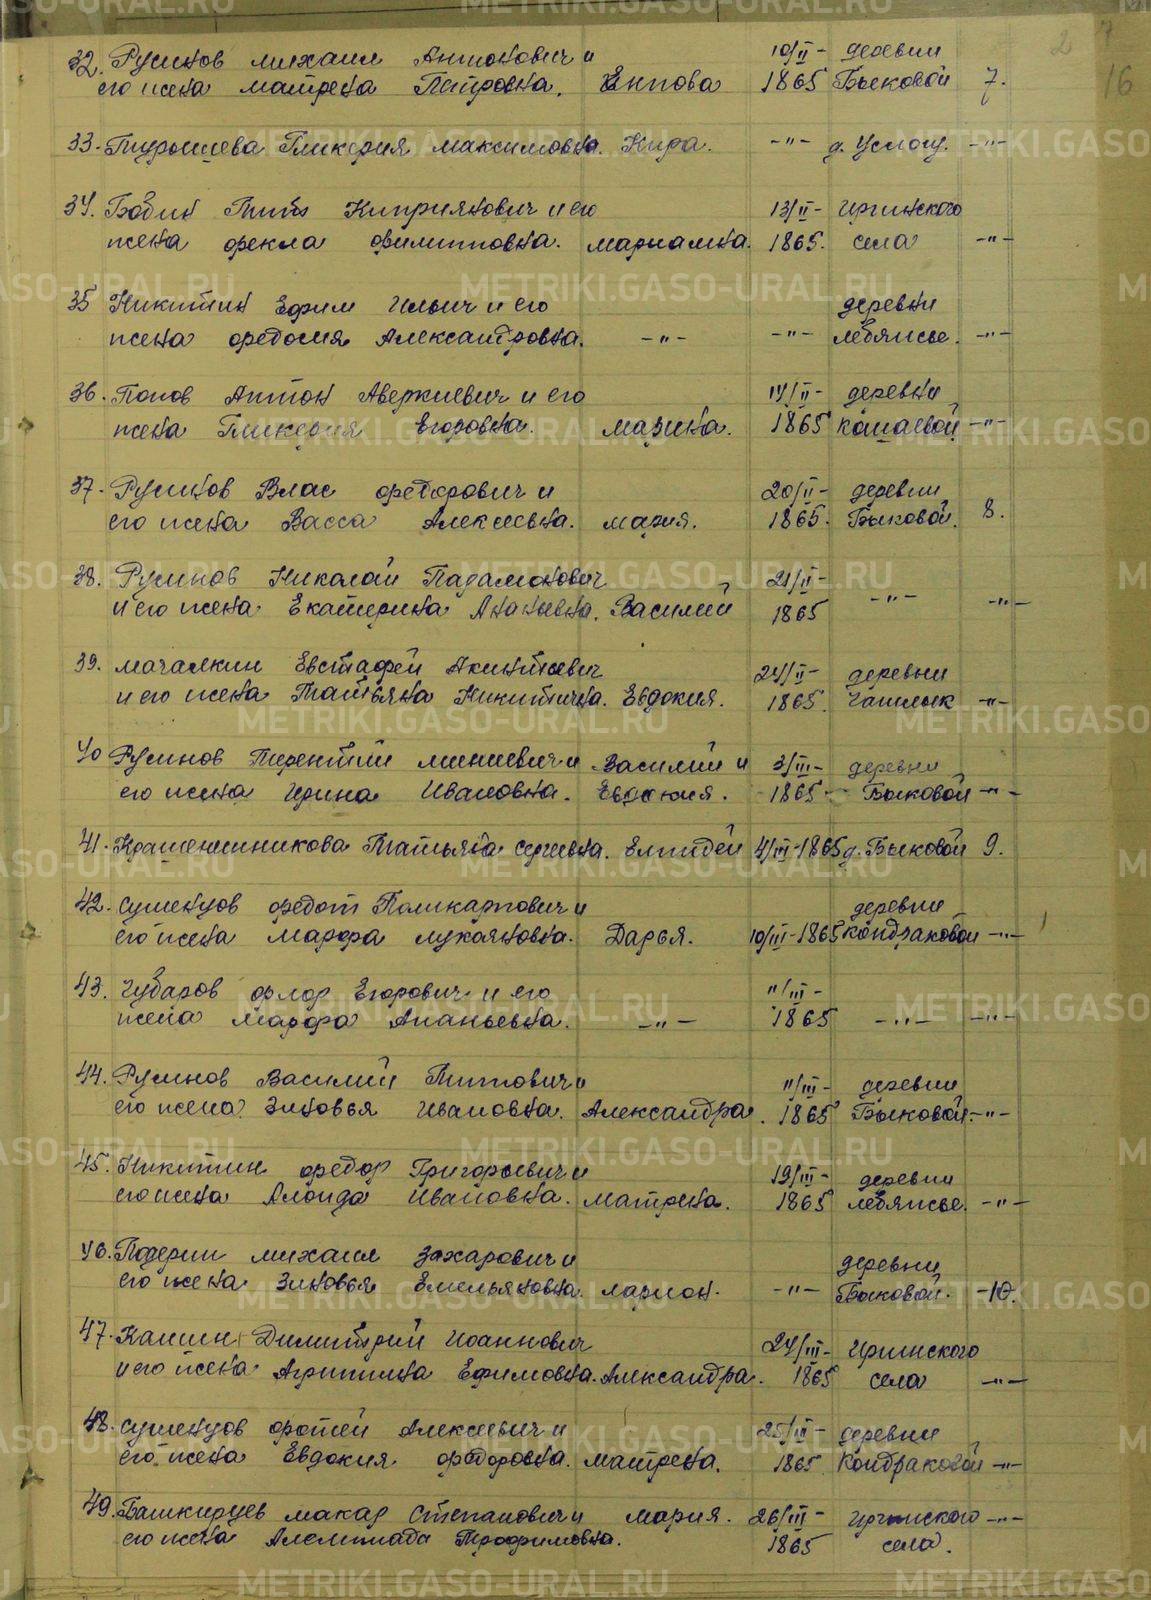 2 7
16
32. Русинов михаил Антонович и 10/II- деревни
его жена матрена Патровна. 1865 Быковой 7.
33. Гликерия максимовна. Кира. -"- д. -"-
34. Бобин Тит Киприянович и его 13/II- Иргинского
жена фекла филипповна. мариамна. 1865. села -"-
35 Никитин Ефим Ильич и его деревни
жена федосия Александровна. -"- -"- лебяжье. -"-
36. Попов Антон Аверкиевич и его 14/II- деревни
жена Гликерия Егоровна. марина. 1865 капаевой -"-
37. Русинов Влас федорович и 20/II- деревни
его жена Васса Алексеевна. мария. 1865. Быковой. 8.
38. Русинов Николай 21/II-
и его жена Екатерина Ананьевна. Василий 1865 -"- -"-
39. Евстафей 24/II- деревни
и его жена Татьяна Никитична. Евдокия. 1865. -"-
40 Русинов Терентий минеевич и Василий и 3/III- деревни
его жена Ирина Ивановна. Евдокия. 1865- Быковой -"-
41. Крашенинникова Татьяна Сергеевна. Елпидей 4/III-1865 д. Быковой 9.
42. Сушенцов федот Поликарпович и деревни
его жена марфа лукояновна. Дарья. 10/III-1865 кондраковой -"-
43. Чубаров флор Егорович и его 11/III-
жена марфа Ананьевна. -"- 1865 -"- -"-
44. Русинов Василий Титович и 11/III- деревни
его жена Зиновья Ивановна. Александра. 1865 Быковой. -"-
45. Никитин федор Григорьевич и 19/III- деревни
его жена Ивановна. матрена. 1865 лебяжье. -"-
46. михаил Захарович и деревни
его жена Зиновья Емельяновна. ларион. -"- Быковой. -10.
47. Димитрий Иоаннович 24/III- Иргинского
и его жена Агрипина Ефимовна. Александра. 1865 села -"-
48. Сушенцов фотей Алексеевич и 25/III- деревни
его жена Евдокия федоровна. матрена. 1865 Кондраковой -"-
49. Башкирцев макар Степанович и мария. 26/III- Иргинского -"-
его жена Трофимовна. 1865 села.
METRIKI.GASO-URAL.RU